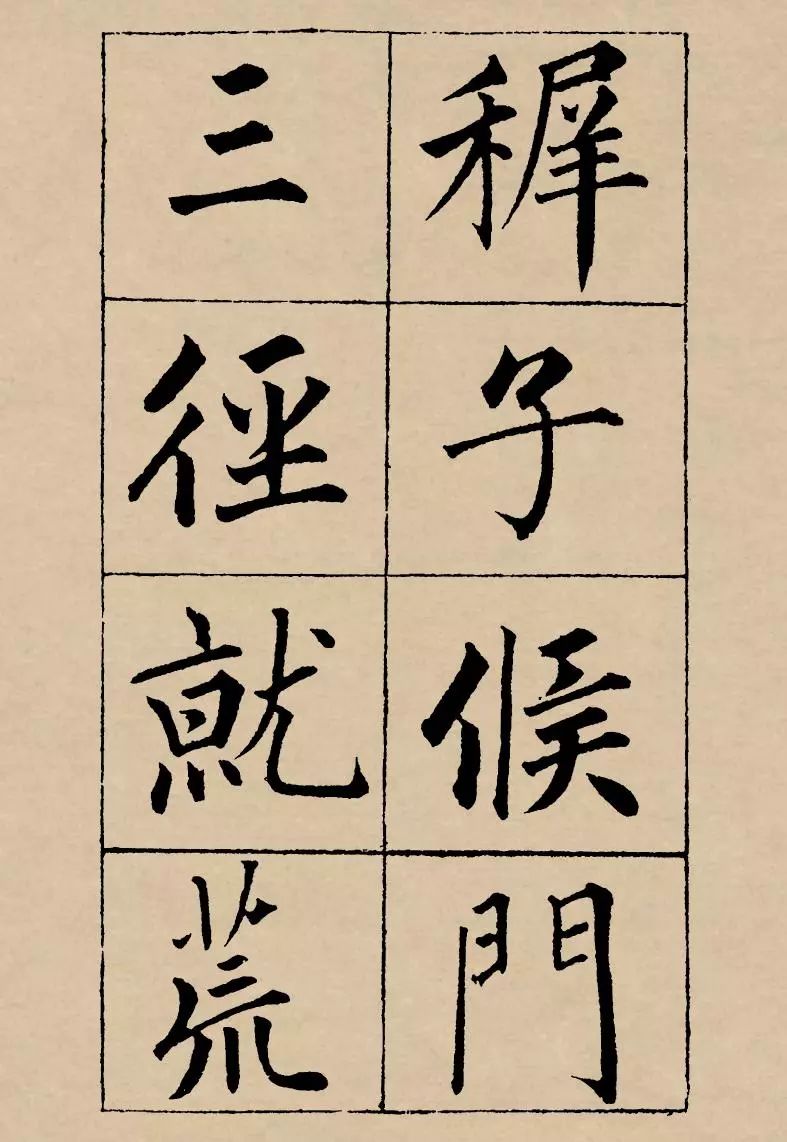 稺子候門
三徑就荒